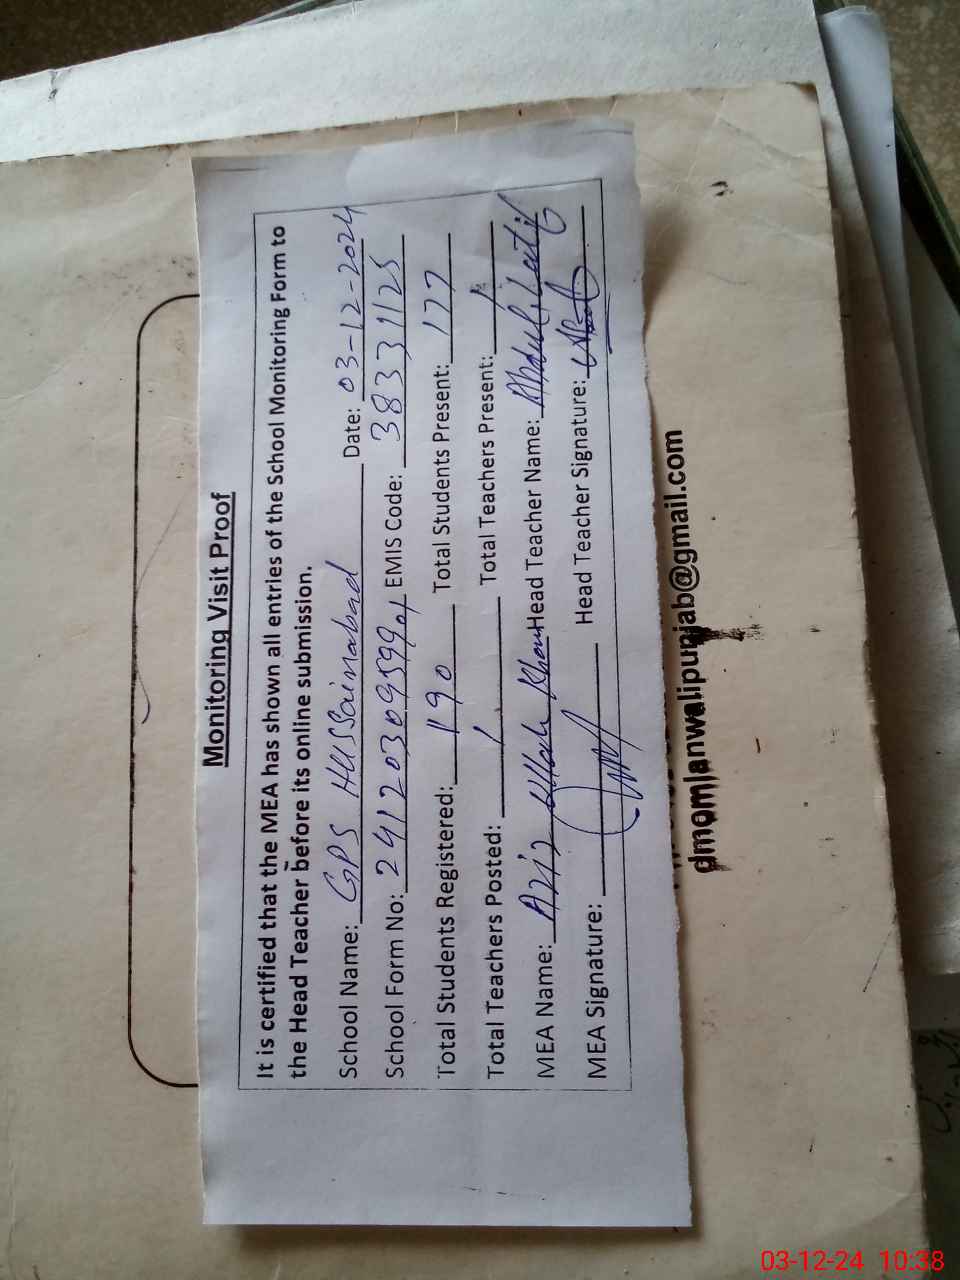 Monitoring Visit Proof
It is certified that the MEA has shown all entries of the School Monitoring Form to
the Head Teacher before its online submission.
School Name: GPS Hussainabad Date: 03-12-2024
School Form No: 2412030959901 EMIS Code: 38331125
Total Students Registered: 190 Total Students Present: 177
Total Teachers Posted: 1 Total Teachers Present: 1
MEA Name: Aziz Ullah Khan Head Teacher Name: Abdul Latif
MEA Signature: Head Teacher Signature:
dmomianwalipunjab@gmail.com
03-12-24 10:38